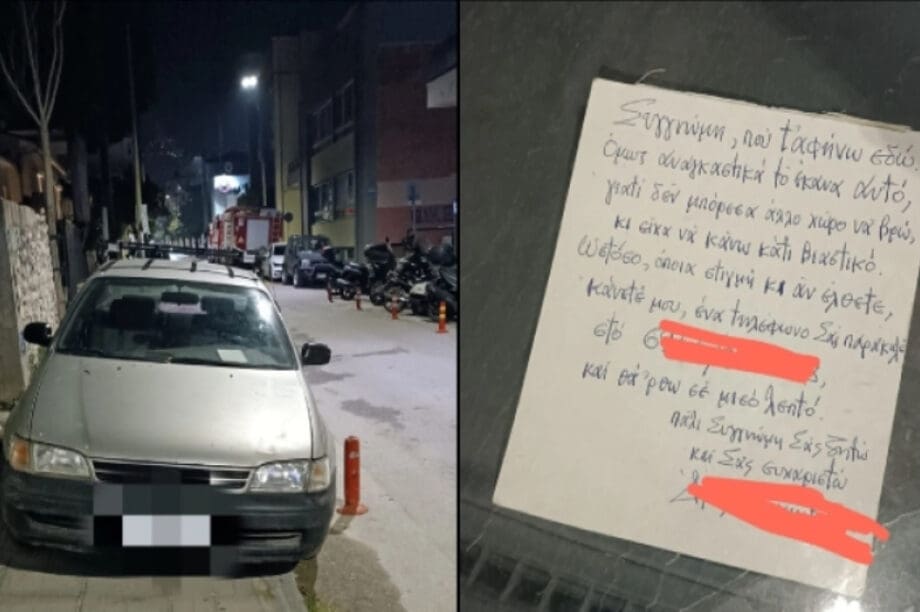 Συγγνώμη, πού τ'αφήνω εδώ.
Όμως αναγκαστικά τό έκανα αυτό,
γιατί δέν μπόρεσα άλλο χώρο νά βρώ,
κι είχα νά κάνω κάτι βιαστικό.
Ωστόσο, όποια στιγμή κι άν έλθετε,
κάνετέ μου, ένα τηλέφωνο Σάς παρακαλώ
στό 6
καί θά'ρθω σέ μισό λεπτό.
Πάλι Συγγνώμη Σάς ζητώ
καί Σάς ευχαριστώ